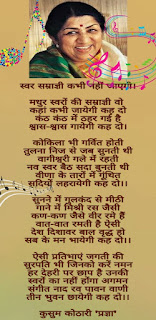 स्वर सम्राज्ञी कभी नहीं जाएगी।
मधुर स्वरों की सम्राज्ञी वो
कहां कभी जायेगी कह दो
कंठ कंठ में ठहर गई है
श्वास-श्वास गायेगी कह दो।
कोकिला भी गर्वित होती
तुलना निज से जब सुनती थी
वागीश्वरी गले में रहती
नव स्वर बैठ सदा बुनती थी
वीणा के तारों में गूंथित
सदियों लहरायेगी कह दो।
सुनने में गुलकंद से मीठी
गाने में मिश्री रस जैसी
कण-कण जैसे वीर रमे हैं
वात-वात रमती है ऐसी
देश दिशावर बाल वृद्ध हो
सब के मन भायेगी कह दो।
ऐसी प्रतिभाएं जगती की
सुरपति भी जिनको करें नमन
हर देहरी पर छाप है उनकी
स्वरों का नहीं होगा अगमन
संगीत नाद रव पावन वाणी
तीन भुवन छायेगी कह दो।
कुसुम कोठारी "प्रज्ञा"